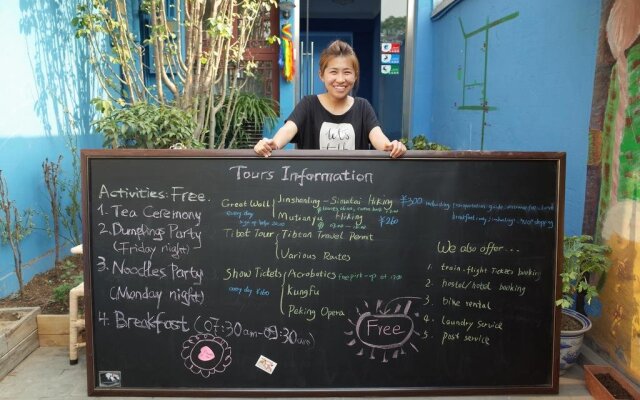 Tours Information
Activities: Free.
1. Tea Ceremony
2. Dumplings Party
(Friday night)
3. Noodles Party
(Monday night)
4. Breakfast (07:30am-09:30am)
Great Wall
every day
Jinshanling - Simatai Hiking ¥300
Mutianyu Hiking ¥260
Tibet Tour
Tibetan Travel Permit
Various Routes
Show Tickets
every day
Acrobatics free pick-up at
Kungfu
Peking Opera
Free
We also offer...
1. train.flight tickets booking
2. hostel/hotel booking
3. bike rental
4. laundry service
5. post service